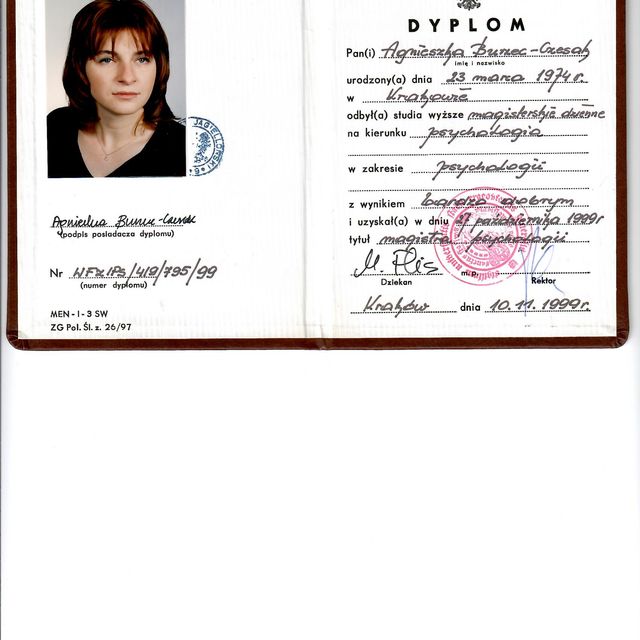 JAGIELLOŃSKI
Agnieszka Burzec-Czesak
(podpis posiadacza dyplomu)
Nr WFz/Ps/419/795/99
(numer dyplomu)
MEN - I - 3 SW
ZG Pol. Śl. z. 26/97
DYPLOM
Pan(i) Agnieszka Burzec-Czesak
imię i nazwisko
urodzony(a) dnia 23 marca 1974r.
w Krakowie
odbył(a) studia wyższe magisterskie dzienne
na kierunku psychologia
w zakresie psychologii
z wynikiem bardzo dobrym
i uzyskał(a) w dniu 27 października 1999r
tytuł magistra psychologii
M. Plis
Dziekan
m.p.
Rektor
Kraków dnia 10.11.1999r.